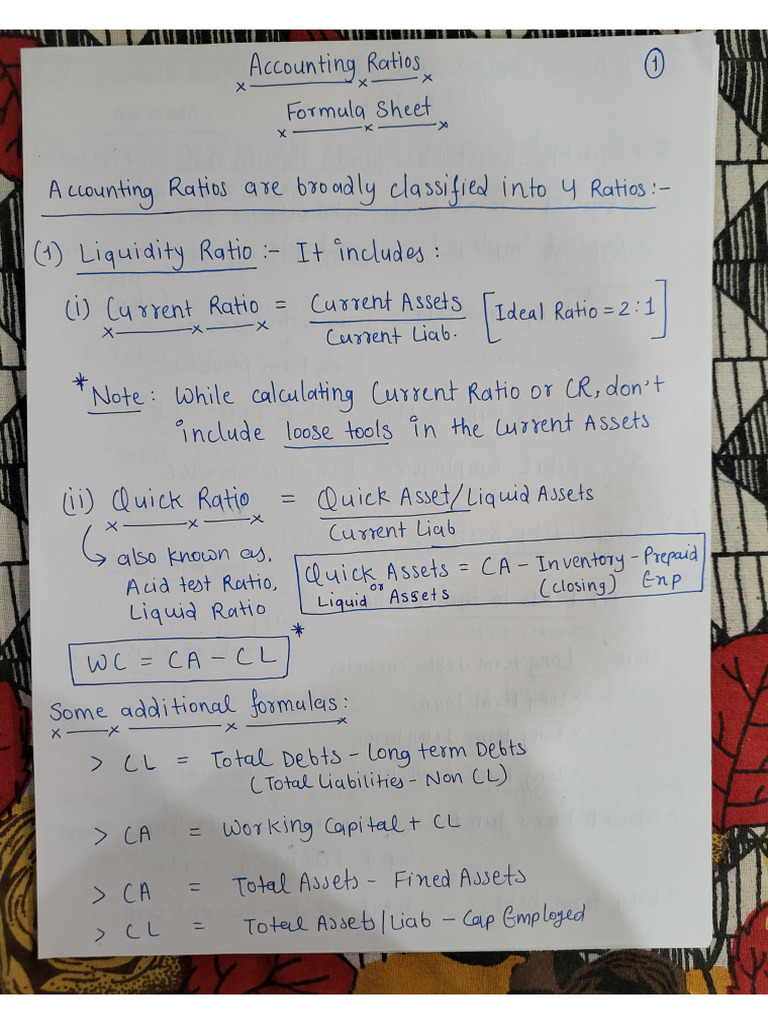 Accounting Ratios
①
Formula Sheet
Accounting Ratios are broadly classified into 4 Ratios:-
(1) Liquidity Ratio :- It includes:
(i) Current Ratio = Current Assets / Current Liab. [Ideal Ratio = 2:1]
*Note: While calculating Current Ratio or CR, don't
include loose tools in the Current Assets
(ii) Quick Ratio = Quick Asset/Liquid Assets
Current Liab
also known as,
Acid test Ratio,
Liquid Ratio
Quick Assets = CA - Inventory - Prepaid
or Liquid Assets (closing) Exp
WC = CA - CL *
Some additional formulas:
> CL = Total Debts - Long term Debts
(Total Liabilities - Non CL)
> CA = Working Capital + CL
> CA = Total Assets - Fixed Assets
> CL = Total Assets/Liab - Cap Employed